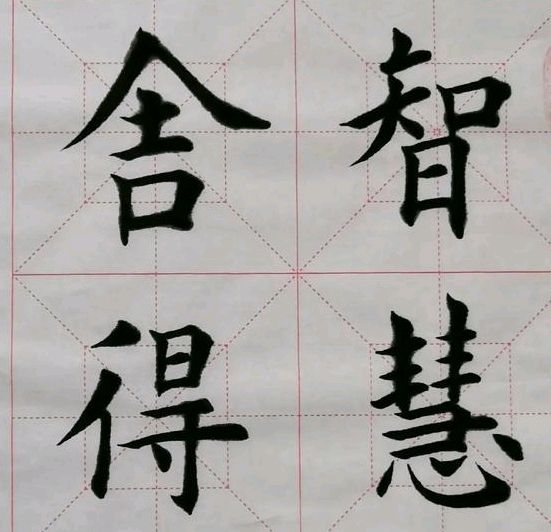 智慧
舍得